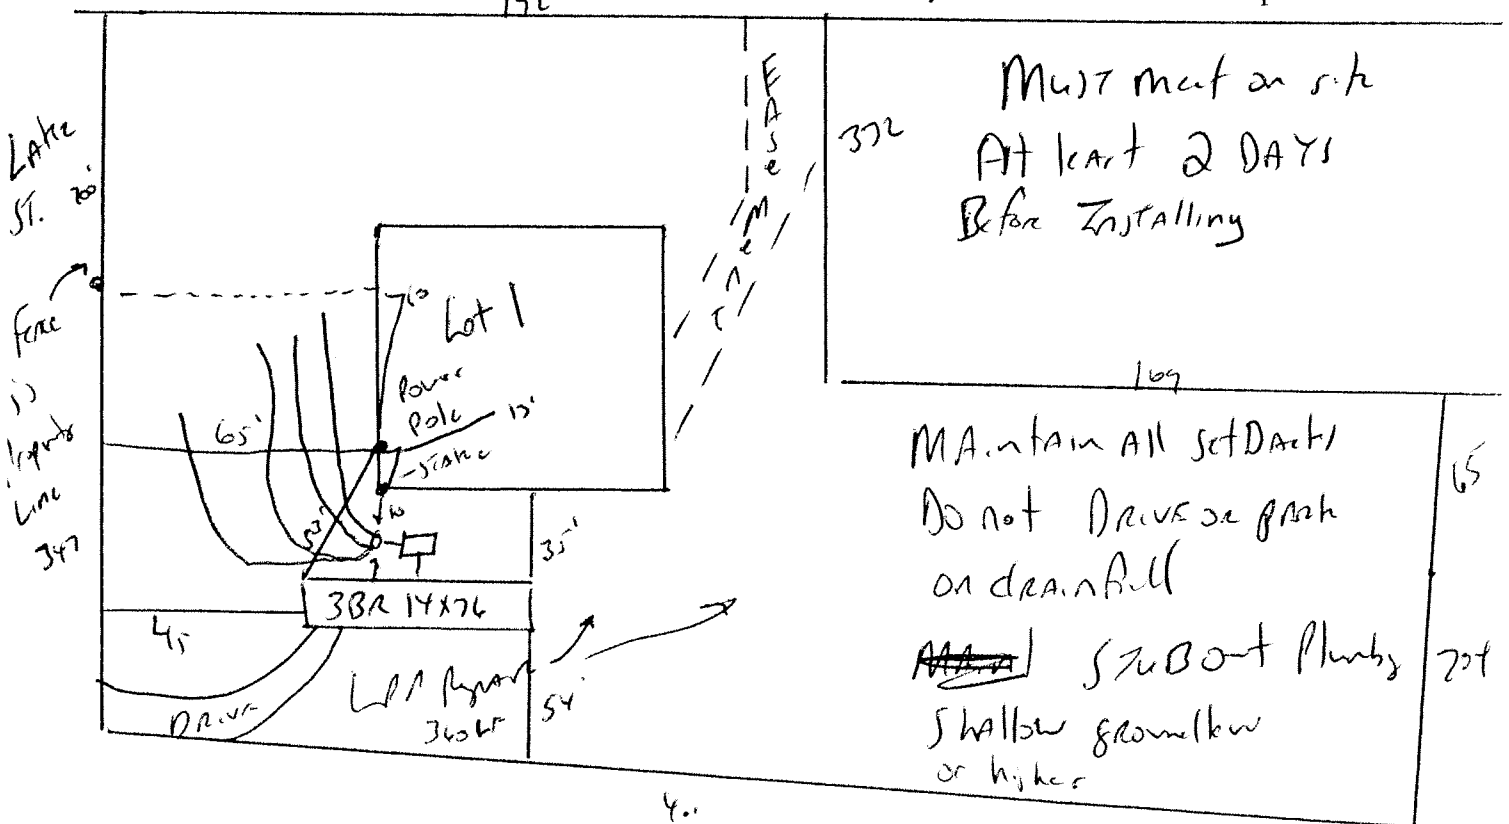 192
LAKE
ST.
Fence
is
Property
Line
347
EASeMeNT
372
Must meet on site
At least 2 DAYS
Before Installing
10
Lot 1
Power
Pole
15'
65'
STAKE
10
35'
3BR 14x76
45
DRIVE
LPP Repair
360 LF
54'
169
MAintain All SetBacks
Do not DRIVE or park
on drainfield
STUB Out Plumbing
Shallow
or higher
65